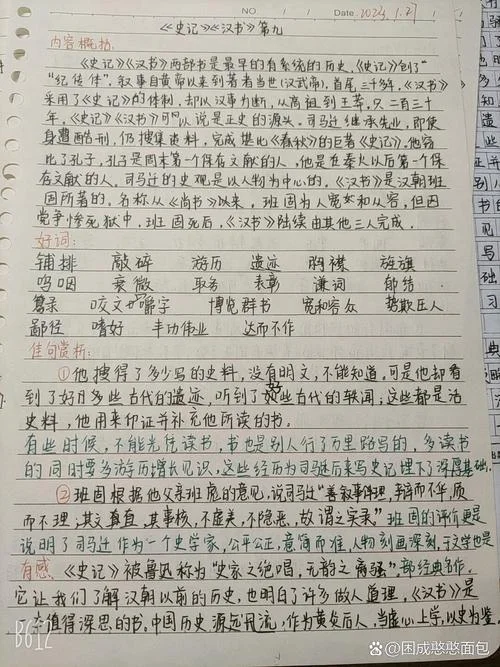 NO
Date. 2024. 1. 21
《史记》《汉书》第九
内容概括:
《史记》《汉书》两部书是最早的有系统的历史,《史记》创了
"纪传体",叙事自黄帝以来到著者当世(汉武帝),首尾三千多年,《汉书》
采用了《史记》的体制,却以汉事为断,从高祖到王莽,只二百三十
年。《史记》《汉书》可以说是正史的源头。司马迁继承先业,即使
身遭酷刑,仍搜集资料,完成堪比《春秋》的巨著《史记》。他窃
比了孔子,孔子是周末第一个保存文献的人,他是在秦火以后第一个保
存文献的人。司马迁的史观是以人物为中心的。《汉书》是汉朝班
固所著的。名称从《尚书》以来,班固为人宽和从容,但因
党争惨死狱中,班固死后,《汉书》陆续由其他三人完成。
好词:
铺排 敲碎 游历 遗迹 胸襟 旌旗
呜咽 衰微 职务 表彰 谦词 郁结
纂录 咬文嚼字 博览群书 宽和容众 势欺压人
鄙径 嗜好 丰功伟业 达而不作
佳句赏析:
①他搜得了多少写的史料,没有明文,不能知道,可是他却看
到了好多些古代的遗迹,听到了好些古代的轶闻;这些都是活
史料,他用来印证并补充他所读的书。
有些时候,不能光凭读书,书也是别人行了万里路写的,多读书
的同时要多游历增长见识,这些经历为司马迁后来写史记埋下了深厚基础。
②班固根据他父亲班彪的意见,说司马迁"善叙事理,辩而不华,质
而不理,其文直,其事核,不虚美,不隐恶,故谓之实录"班固的评价更是
说明了司马迁作为一个史学家,公平公正,意简而准,人物刻画深刻,
有感《史记》被鲁迅称为"史家之绝唱,无韵之离骚",
它让我们了解汉朝以前的历史,也明白了许多做人道理,《汉书》是
值得深思的书。中国历史源远流,作为黄炎后人,当虚心上学,以史为鉴。
BG12
@困成憨憨面包